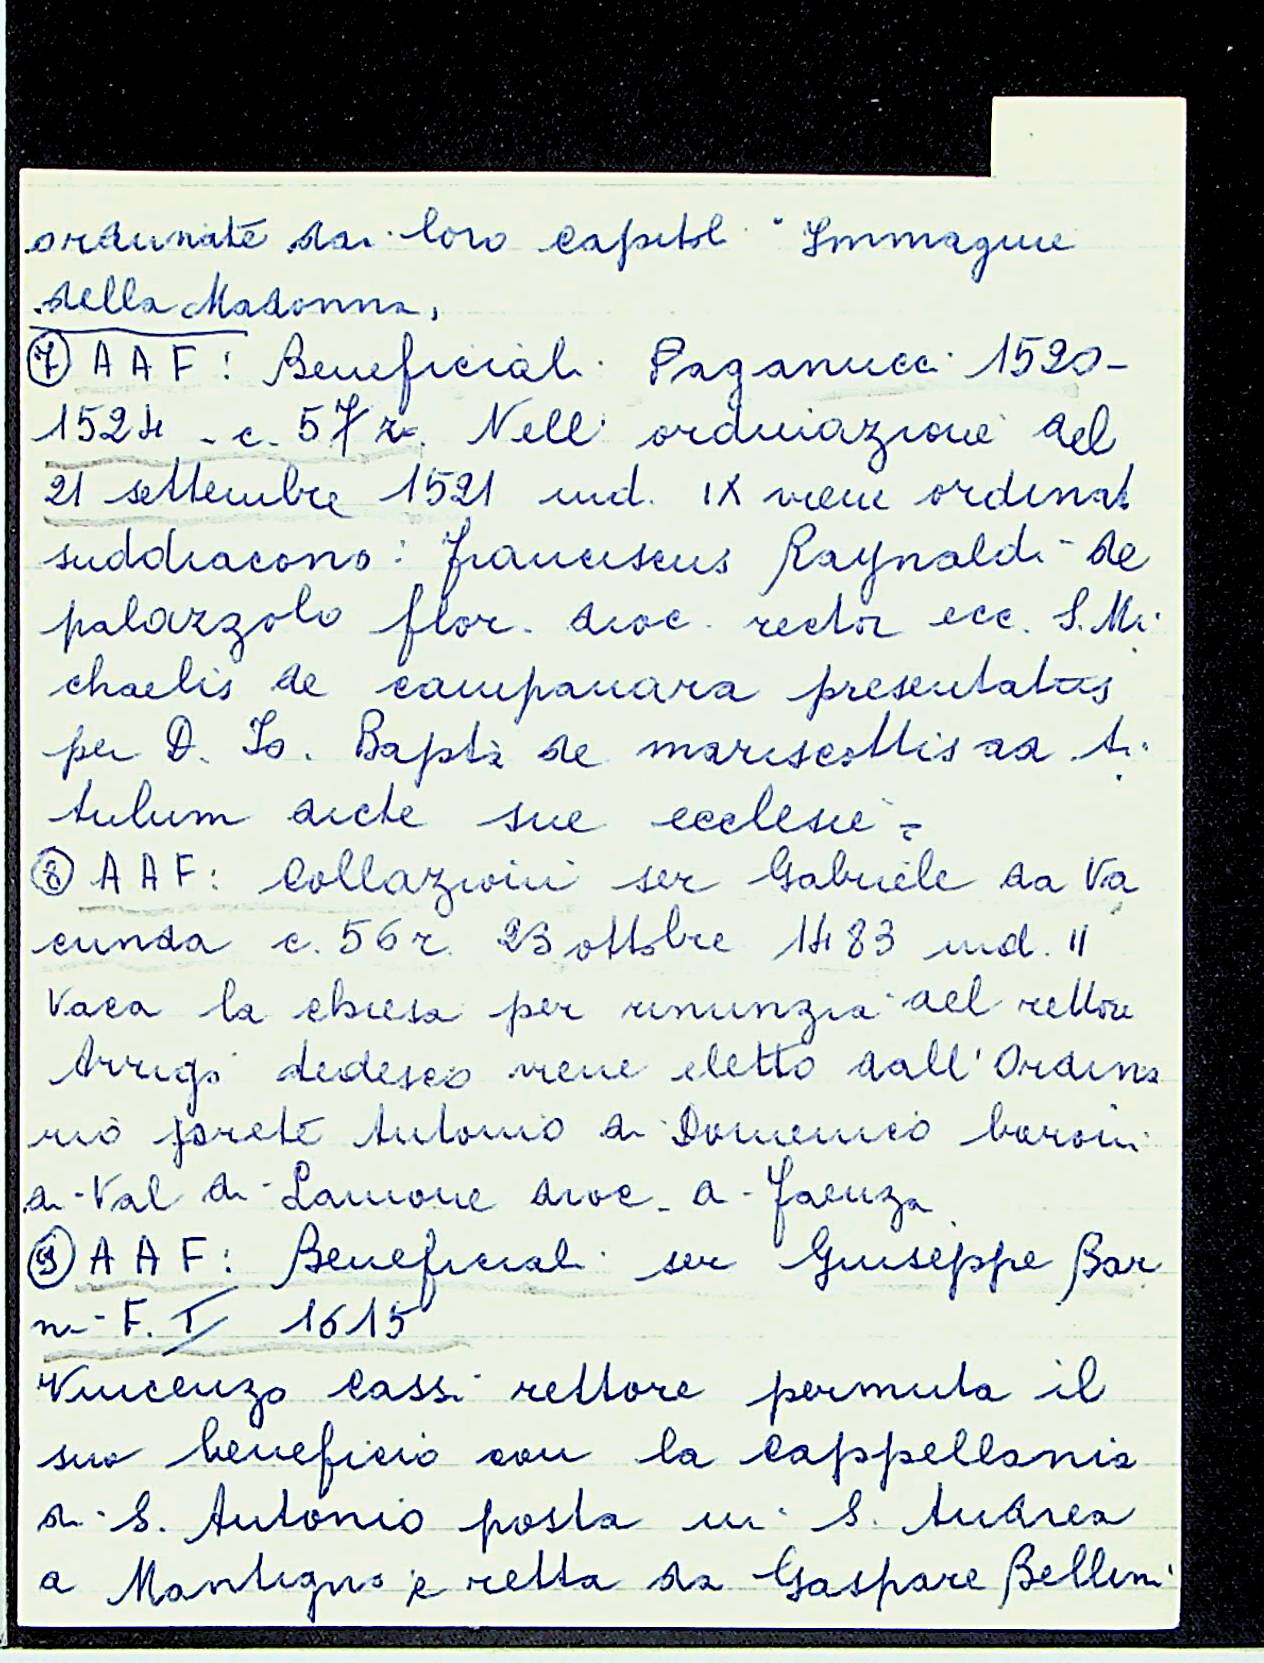 ordinate dai loro capitoli "Immagine
della Madonna,
⑦ A A F: Beneficiali Paganucci 1520-
1524 - c. 57 r. Nell' ordinazione del
21 settembre 1521 ind. IX viene ordinat
suddiacono: Franciscus Raynaldi de
palazzolo flor. dioc. rector ecc. S. Mi
chaelis de campanara presentatus
per D. Io. Bapta de mariscottis ad ti
tulum dicte sue ecclesie =
⑧ A A F: Collazioni ser Gabriele da Va
cunda c. 56 r. 23 ottobre 1483 ind. II
Vaca la chiesa per rinunzia del rettore
Arrigo tedesco viene eletto dall'Ordina
rio prete Antonio di Domenico baroni
di Val di Lamone dioc. di Faenza
⑨ A A F: Beneficiali ser Giuseppe Bar
ni F. I 1615
Vincenzo Cassi rettore permuta il
suo beneficio con la cappellania
di S. Antonio posta in S. Andrea
a Mantigno e retta da Gaspare Bellini